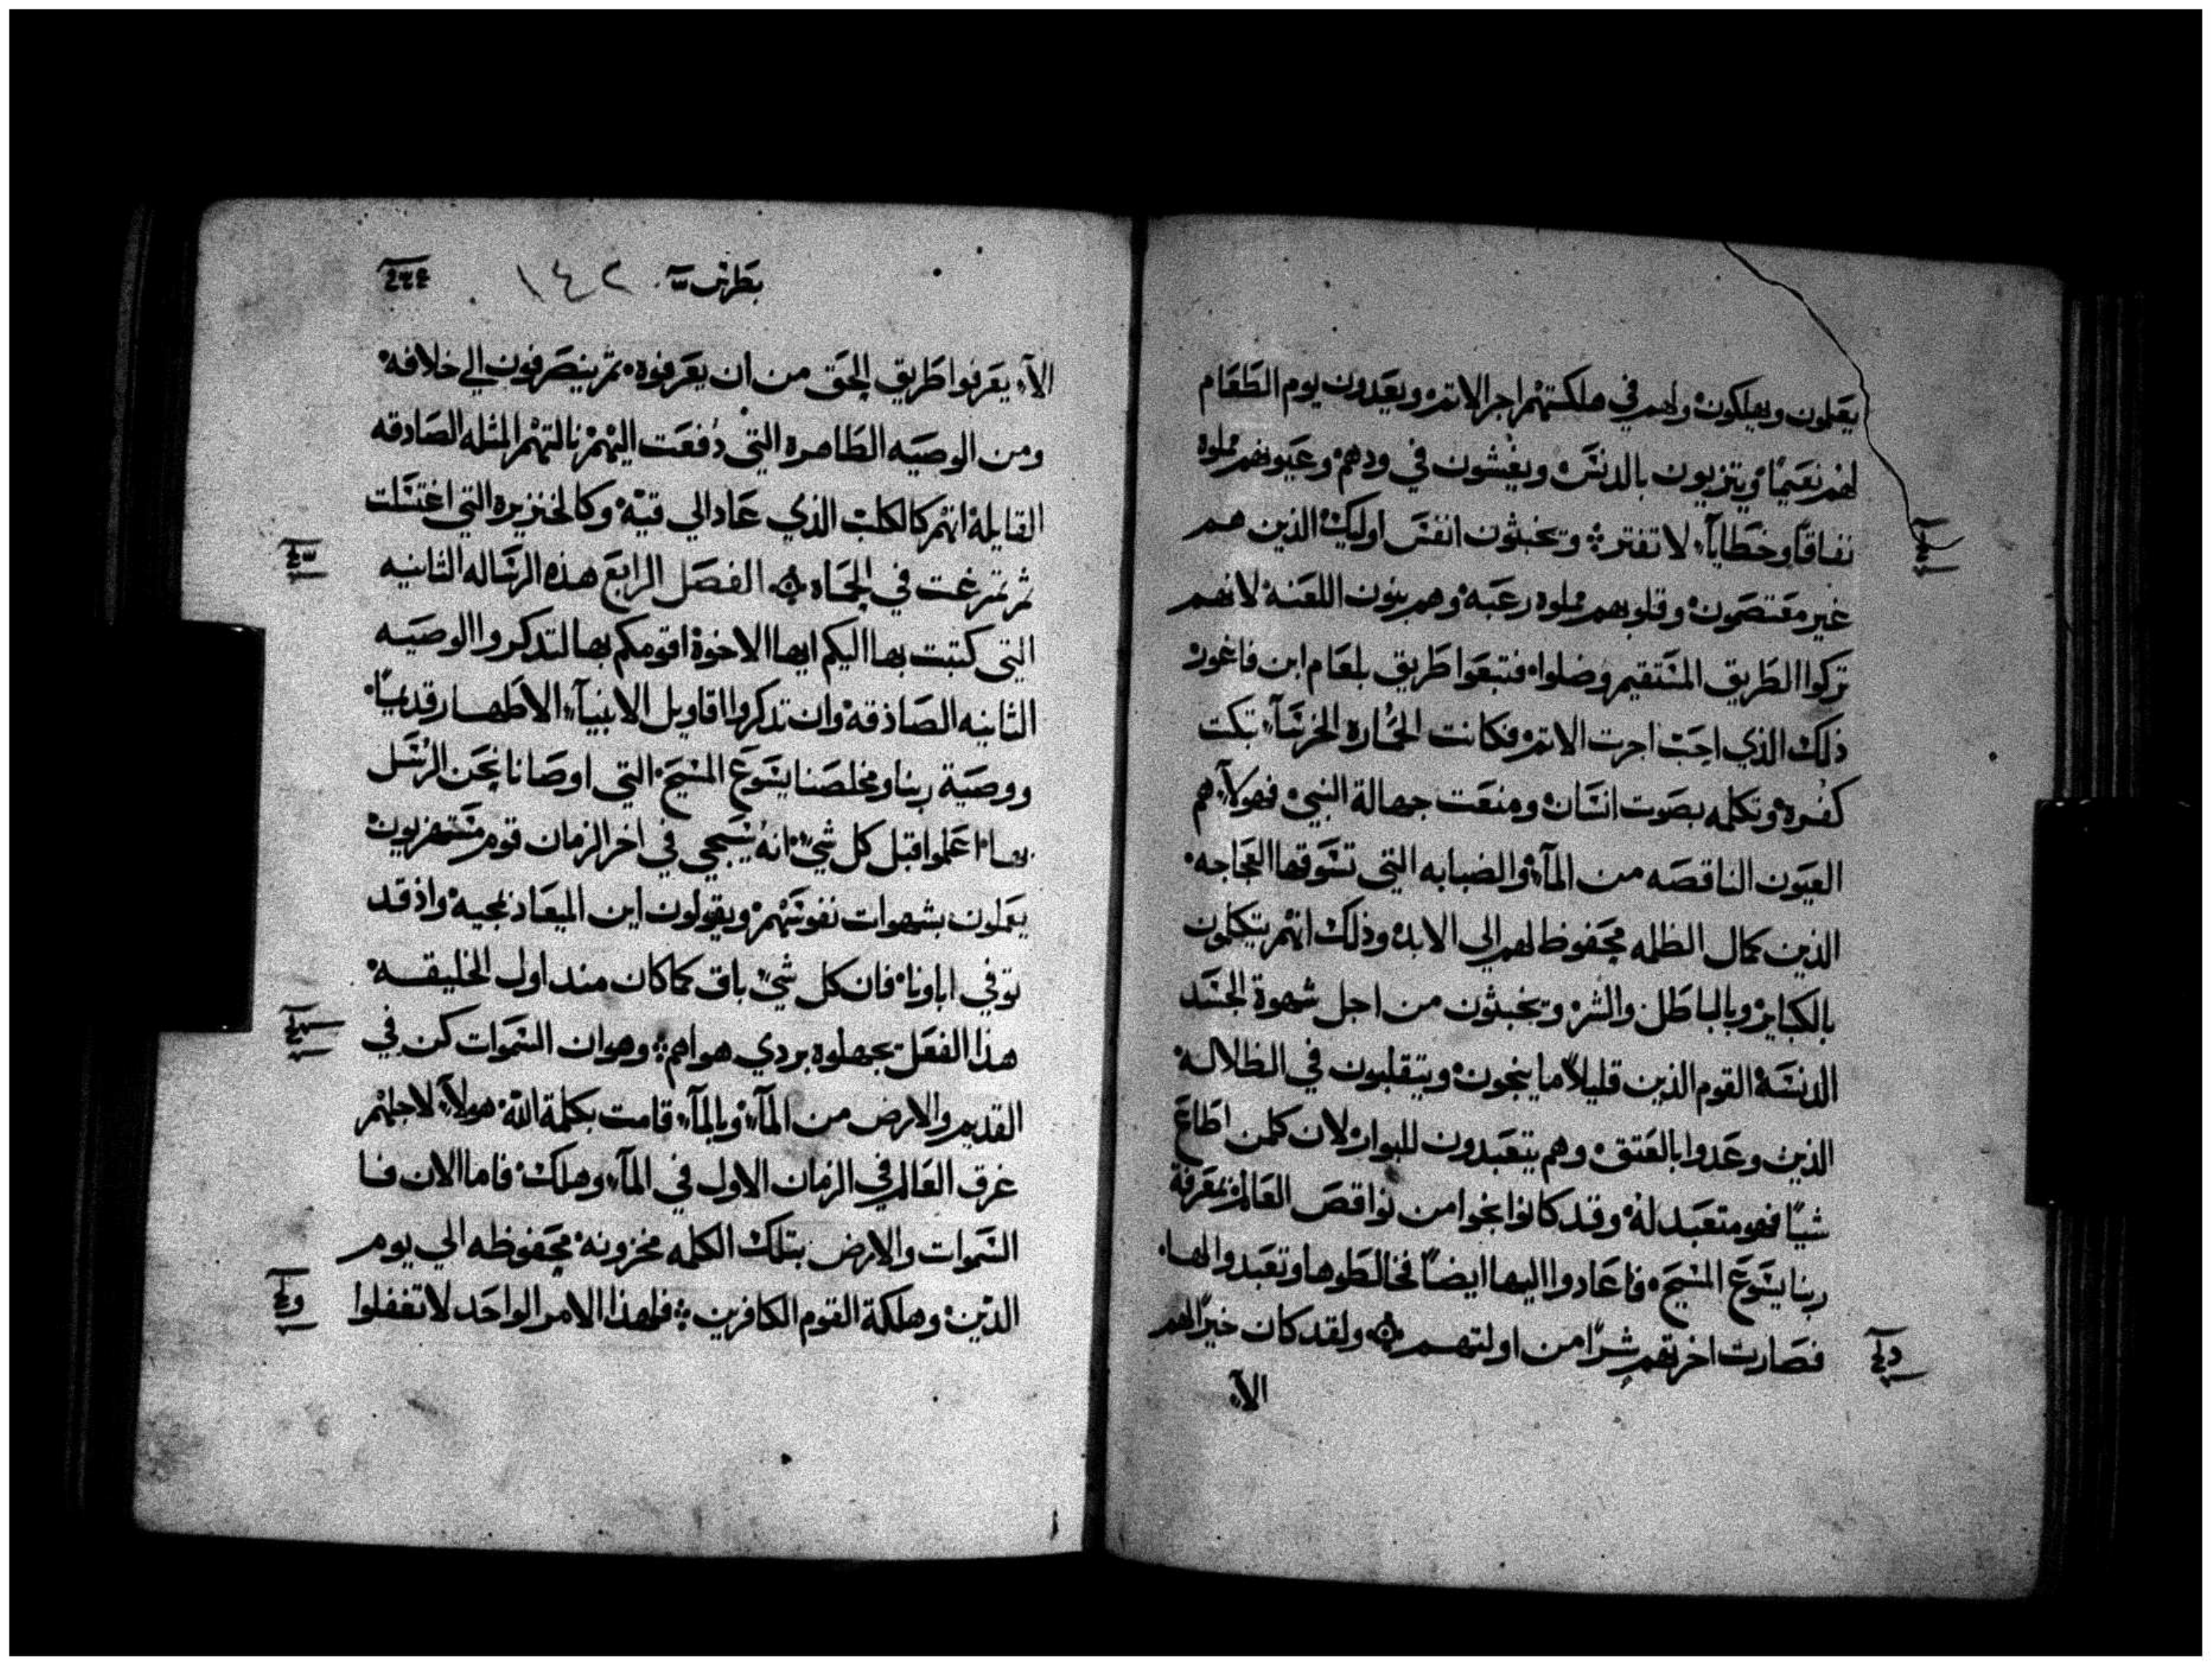 يعملون ويهلكون ولهم في هلكتهم اجر الاثم ويعدون يوم الطعام
لهم نعيمًا ويتزيون بالدنس ويغشون في ودهم وعيونهم مملوه
نفاقًا وخطايآء لا تفتر ويخبثون انفس اوليك الذين هم
غير معتصمون وقلوبهم مملوه رعبه وهم بنون اللعنة لانهم
تركوا الطريق المستقيم وضلوا فتبعوا طريق بلعام ابن فاغور
ذلك الذي احب اجرت الاثم فكانت الحماره الخرسآء تبكت
كفره وتكلمه بصوت انسان ومنعت جهالة النبي فهولآء هم
العيون الناقصه من المآء والضبابه التي تسوقها العجاجه
الذين كمال الظلمه محفوظ لهم الي الابد وذلك انهم يتكلمون
بالكباير وبالباطل والشر ويخبثون من اجل شهوة الجسد
الدنسة القوم الذين قليلاً ما ينجون ويتقلبون في الظلالة
الذين وعدوا بالعتق وهم يتعبدون للبوار لان كلمن اطاع
شيًا فهو متعبد له وقد كانوا نجوا من نواقص العالم بمعرفة
ربنا يسوع المسيح فاعادوا اليها ايضًا فخالطوها وتعبدوا لها
فصارت اخرتهم شرًا من اولتهم ولقد كان خيرًا لهم
الآء
بطرس ١٤٢
الآء يعرفوا طريق الحق من ان يعرفوه ثم ينصرفون الي خلافه
ومن الوصيه الطاهره التي دفعت اليهم نالتهم المثله الصادقه
القايلة انهم كالكلب الذي عاد الي قيه وكالخنزيره التي اغتسلت
ثم تمرغت في الحماه الفصل الرابع هذه الرساله الثانيه
التي كتبت بها اليكم ايها الاخوة اقومكم بها لتدكروا الوصيه
الثانيه الصادقة وان تدكروا اقاويل الانبيآء الاطهار قديمًا
ووصية ربنا ومخلصنا يسوع المسيح التي اوصانا نحن الرسل
بها اعلموا قبل كل شي انه سيجي في اخر الزمان قوم مستهزيون
يعملون بشهوات نفوسهم ويقولون اين الميعاد لمجيه واذ قد
توفي اباونا فان كل شي باق كما كان مند اول الخليقه
هذا الفعل بجهلوه بردي هواهم وهو ان السموات كن في
القديم والارض من المآء وبالمآء قامت بكلمة الله هولآء لاجلهم
غرق العالم في الزمان الاول في المآء وهلك فاما الان فا
السموات والارض بتلك الكلمه مخزونه محفوظه الي يوم
الدين وهلكة القوم الكافرين فلهذا الامر الواحد لا تغفلوا